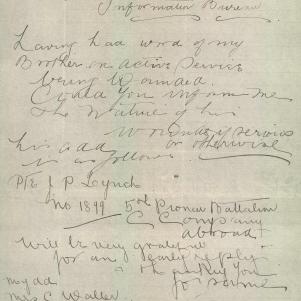 Information Bureau
Having had word of my
Brother on active Service
being Wounded.
Could You inform me
the Nature of his
Wounds if serious
or otherwise
his add
is as follows
Pte J P Lynch
No 1899 5th Pioneer Battalion
C Company
abroad
Will be very grateful
for an early reply.
thanking You
for same
my add
Mrs C Waller